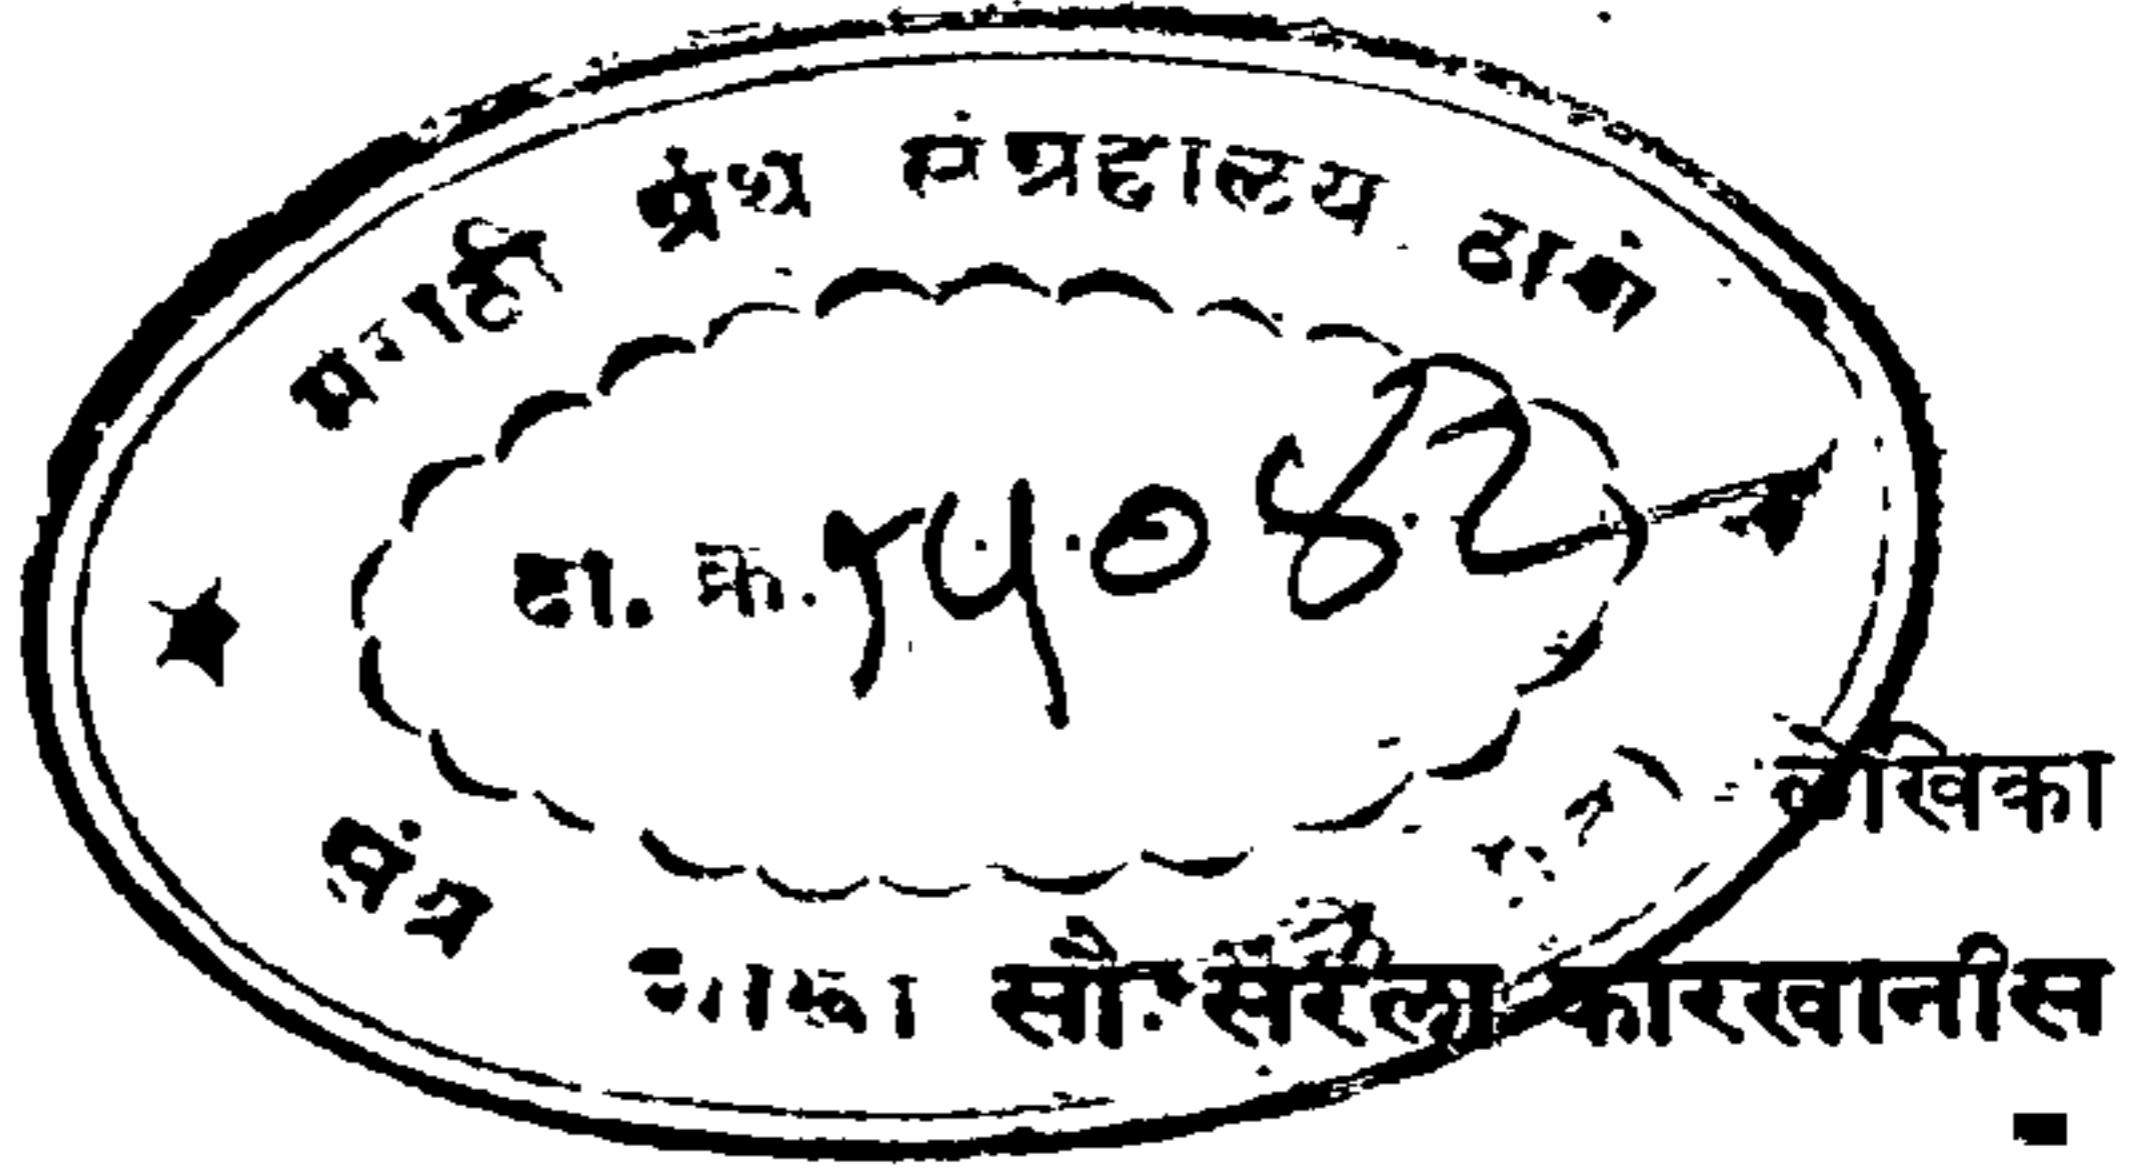 मराठी ग्रंथ संग्रहालय ठाणे
दा. क्रं. १५०४२
लेखिका
सौ. सरला कारखानीस